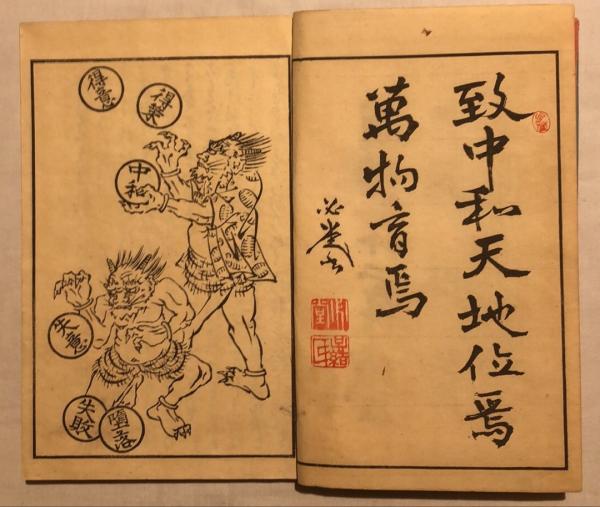 致中和天地位焉
萬物育焉
得
得意
中和
失意
失敗
墮落